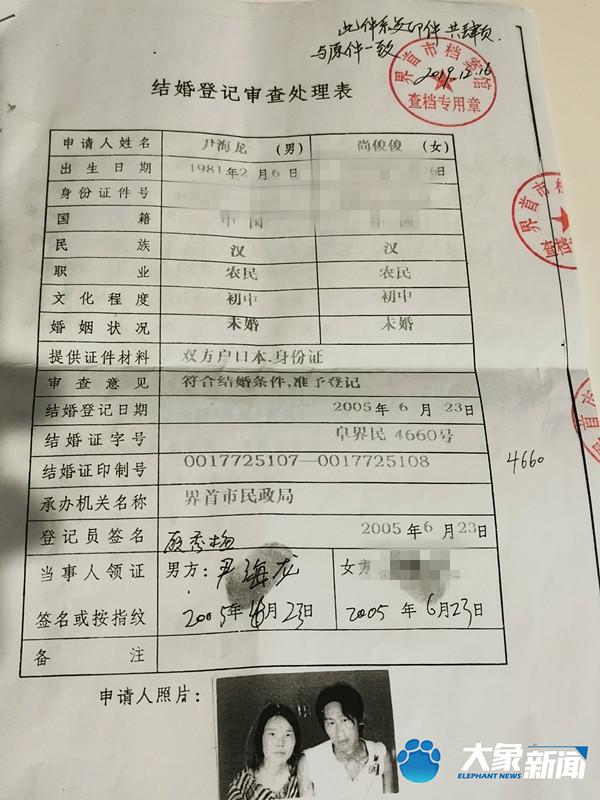 此件系复印件共肆页.
与原件一致
2019.12.16
界首市档案馆
查档专用章
结婚登记审查处理表
申请人姓名 尹海龙 (男) 尚俊俊 (女)
出生日期 1981年2月6日 6日
身份证件号
国籍 中国 中国
民族 汉 汉
职业 农民 农民
文化程度 初中 初中
婚姻状况 未婚 未婚
提供证件材料 双方户口本.身份证
审查意见 符合结婚条件,准予登记
结婚登记日期 2005年6月23日
结婚证字号 阜界民4660号
结婚证印制号 0017725107—0017725108
4660
承办机关名称 界首市民政局
登记员签名 2005年6月23日
当事人领证 男方: 尹海龙 女方
签名或按指纹 2005年6月23日 2005年6月23日
备注
申请人照片:
界首市档
查档
大象新闻
ELEPHANT NEWS